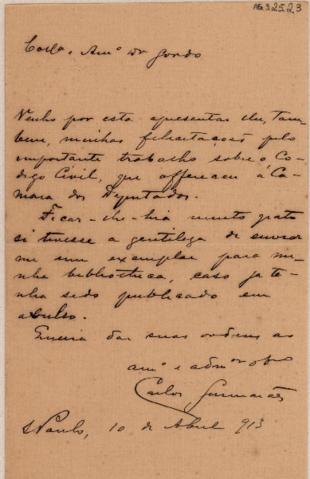 AG 32.5.23
Colla. e Amº Dr Gordo
Venho por esta apresentar-lhe, tam-
bem, minhas felicitações pelo
importante trabalho sobre o Co-
digo Civil, que offereceu á Ca-
mara dos Deputados.
Ficar-lhe-hia muito grato
si tivesse a gentileza de enviar
me um exemplar para mi-
nha bibliotheca, caso ja te-
nha sido publicado em
avulso.
das suas ordens ao
amº e admºr obrº
Carlos Guimarães
S Paulo, 10 de Abril 913